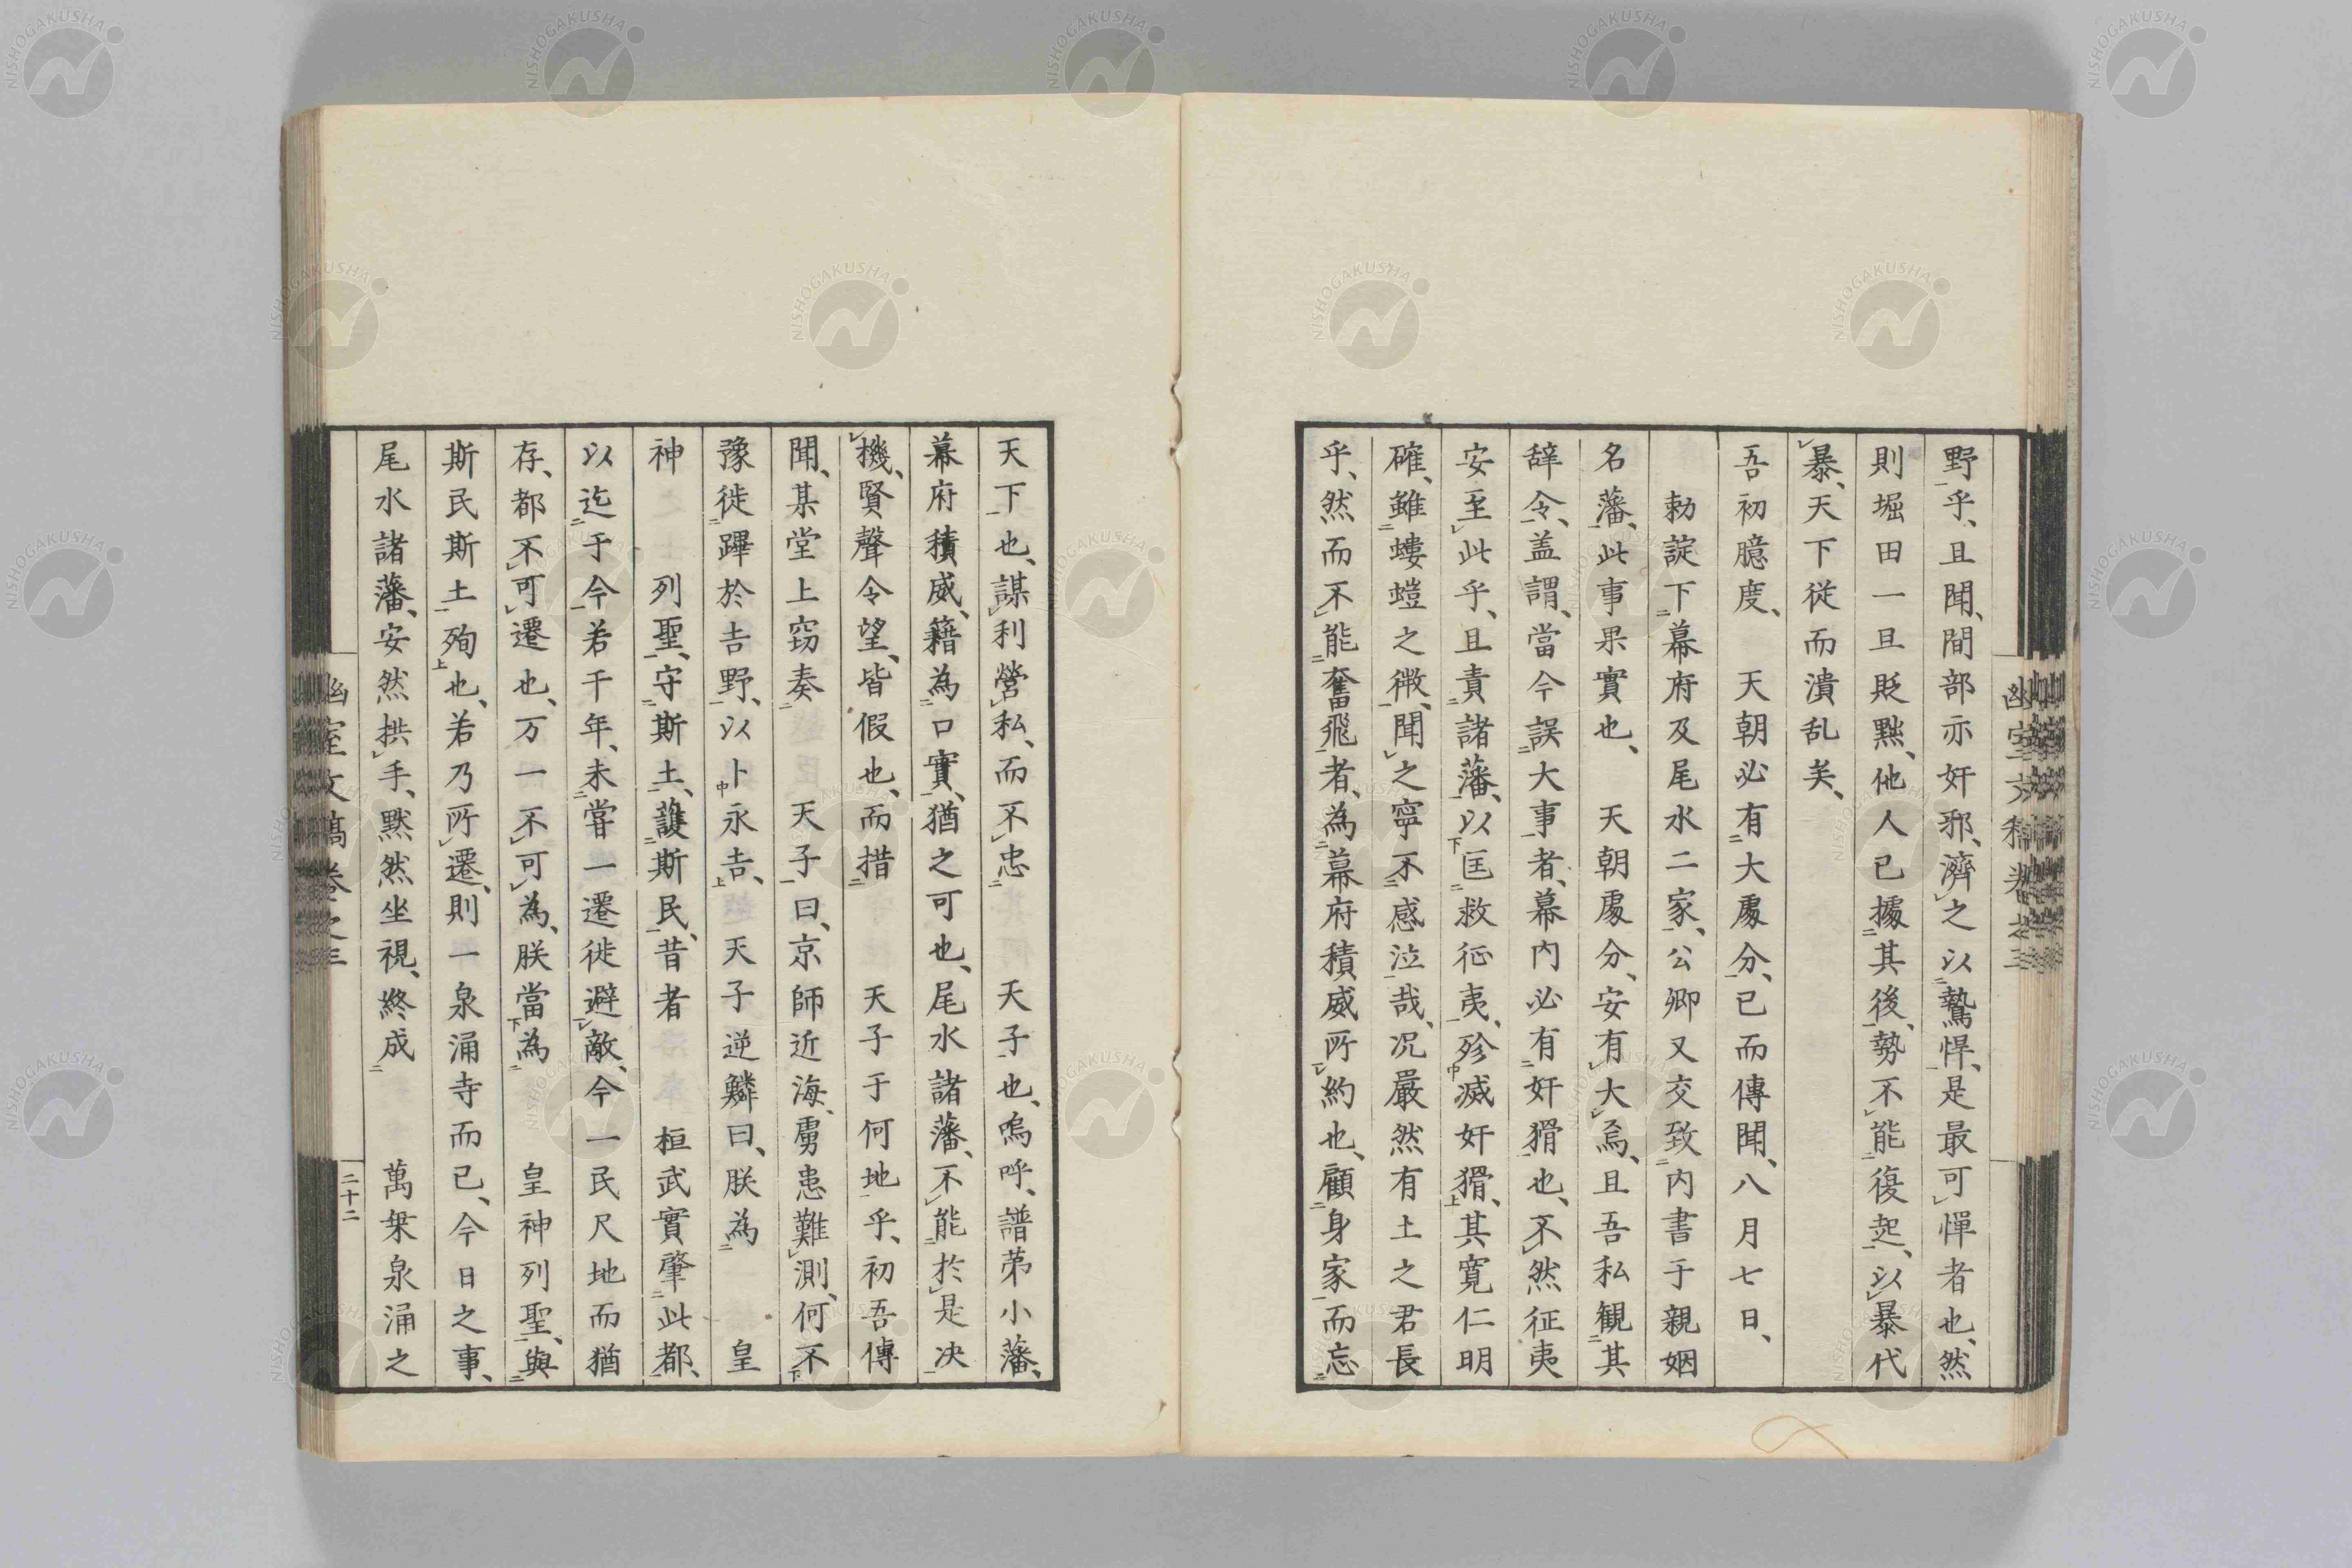 野乎、且聞、間部亦奸邪、濟之以鷙悍、是最可憚者也、然
則堀田一旦貶黜、他人已據其後、勢不能復起、以暴代
暴、天下從而潰乱矣、
吾初臆度、　天朝必有大處分、已而傳聞、八月七日、
勅諚下幕府及尾水二家、公卿又交致内書于親姻
名藩、此事果實也、　天朝處分、安有大焉、且吾私観其
辞令、盖謂、當今誤大事者、幕内必有奸猾也、不然征夷
安至此乎、且責諸藩、以匡救征夷、殄滅奸猾、其寛仁明
確、雖螻螘之微、聞之寧不感泣哉、况嚴然有土之君長
乎、然而不能奮飛者、為幕府積威所約也、顧身家而忘
幽室文稿卷之三
天下也、謀利營私、而不忠　天子也、嗚呼、譜苐小藩、
幕府積威、籍為口實、猶之可也、尾水諸藩、不能於是决
機、賢聲令望、皆假也、而措　天子于何地乎、初吾傳
聞、某堂上窃奏　天子曰、京師近海、虜患難測、何不
豫徙蹕於吉野、以卜永吉、　天子逆鱗曰、朕為　皇
神　列聖、守斯土、護斯民、昔者　桓武實肇此都、
以迄于今、若干年、未甞一遷徙避敵、今一民尺地而猶
存、都不可遷也、万一不可為、朕當為　皇神列聖、與
斯民斯土殉也、若乃所遷、則一泉涌寺而已、今日之事、
尾水諸藩、安然拱手、黙然坐視、終成　萬椉泉涌之
幽室文稿卷之三
二十二